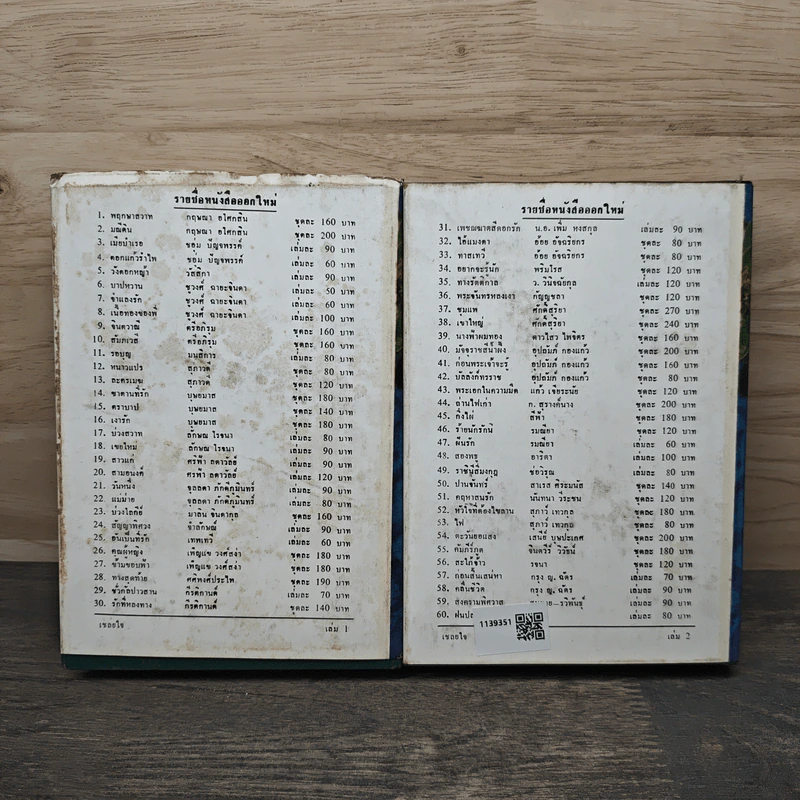 รายชื่อหนังสือออกใหม่
1. พฤกษาสวาท กฤษณา อโศกสิน ชุดละ 160 บาท
2. มณีดิน กฤษณา อโศกสิน ชุดละ 200 บาท
3. เมียบำเรอ ขอม ปัญจพรรค์ เล่มละ 90 บาท
4. ดอกแก้วรำไพ ขอม ปัญจพรรค์ เล่มละ 60 บาท
5. วังดอกหญ้า วัสสิกา เล่มละ 90 บาท
6. บาปหวาน ชูวงศ์ ฉายะจินดา เล่มละ 50 บาท
7. จำแลงรัก ชูวงศ์ ฉายะจินดา เล่มละ 60 บาท
8. เนื้อทองของพี่ ชูวงศ์ ฉายะจินดา เล่มละ 100 บาท
9. จินตวาณี ตรีอภิรุม ชุดละ 160 บาท
10. สัมภเวสี ตรีอภิรุม ชุดละ 160 บาท
11. รอบุญ มนัสการ เล่มละ 80 บาท
12. หนาวแปร สุภาวดี ชุดละ 80 บาท
13. ละครเมฆ สุภาวดี ชุดละ 120 บาท
14. ซาตานที่รัก บุษยมาส ชุดละ 180 บาท
15. ตราบาป บุษยมาส ชุดละ 140 บาท
16. เงารัก บุษยมาส ชุดละ 180 บาท
17. บ่วงสวาท ลักษณ โรจนา เล่มละ 80 บาท
18. เขยใหม่ ลักษณ โรจนา เล่มละ 90 บาท
19. สาวแก่ ศรีฟ้า ลดาวัลย์ เล่มละ 90 บาท
20. ตามอนงค์ ศรีฟ้า ลดาวัลย์ เล่มละ 120 บาท
21. วันหนึ่ง จุลลดา ภักดีภูมินทร์ เล่มละ 90 บาท
22. แม่ม่าย จุลลดา ภักดีภูมินทร์ เล่มละ 80 บาท
23. บ่วงโลกีย์ มาลิน จินดากุล ชุดละ 160 บาท
24. สัญญาพิศวง ชำลักษณ์ เล่มละ 90 บาท
25. อันเป็นที่รัก เทพเทวี เล่มละ 60 บาท
26. คุณผู้หญิง เพ็ญแข วงศ์สง่า ชุดละ 180 บาท
27. ข้ามขอบฟ้า เพ็ญแข วงศ์สง่า ชุดละ 180 บาท
28. ทางสุดท้าย ศศิพงศ์ประไพ ชุดละ 190 บาท
29. กิรตีกานต์ เล่มละ 70 บาท
30. รักที่หลงทาง กิรตีกานต์ ชุดละ 140 บาท
เชลยใจ เล่ม 1
รายชื่อหนังสือออกใหม่
31. เพชฌฆาตสื่อรัก น.อ. เพิ่ม หงสกุล เล่มละ 90 บาท
32. ไอ้แมงดา อ้อย อัจฉริยกร ชุดละ 80 บาท
33. ทาสเทวี อ้อย อัจฉริยกร ชุดละ 80 บาท
34. อยากจะรู้นัก พริมโรส ชุดละ 120 บาท
35. ทางรัตติกาล ว. วินิจฉัยกุล เล่มละ 120 บาท
36. พระจันทร์หลงเงา กัญญ์ชลา ชุดละ 120 บาท
37. ชุมแพ ศักดิ์สุริยา ชุดละ 270 บาท
38. เขาใหญ่ ศักดิ์สุริยา ชุดละ 240 บาท
39. นางฟ้าผมทอง ดาวไสว ไพจิตร ชุดละ 160 บาท
40. มัจจุราชสีน้ำผึ้ง อุปถัมภ์ กองแก้ว ชุดละ 200 บาท
41. ก่อนพระเจ้าจะรู้ อุปถัมภ์ กองแก้ว ชุดละ 160 บาท
42. บัลลังก์ทรราช อุปถัมภ์ กองแก้ว ชุดละ 80 บาท
43. พระเอกในความมืด แก้ว เจียระนัย ชุดละ 120 บาท
44. ถ่านไฟเก่า ก. สุรางคนางค์ ชุดละ 200 บาท
45. กิ่งไผ่ สีฟ้า ชุดละ 180 บาท
46. ร้ายนักรักนี้ รมณียา ชุดละ 120 บาท
47. ผืนรัก รมณียา เล่มละ 60 บาท
48. สองพธู อาริตา เล่มละ 100 บาท
49. ราชินีไร้มงกุฎ ช่อวิรุณ เล่มละ 80 บาท
50. ปานจันทร์ สาเรศ ศิระมนัส ชุดละ 140 บาท
51. คฤหาสน์รัก นันทนา วีระชน ชุดละ 120 บาท
52. หัวใจที่ต้องไขลาน สุภาว์ เทวกุล ชุดละ 180 บาท
53. ไฟ สุภาว์ เทวกุล ชุดละ 80 บาท
54. ตะวันยอแสง เสนีย์ บุษปะเกศ ชุดละ 200 บาท
55. คัมภีร์กุด จินตวีร์ วิวัธน์ ชุดละ 180 บาท
56. สะใภ้จ้าว รจนา ชุดละ 120 บาท
57. ก่อนสิ้นเสน่หา กรุง ญ. ฉัตร เล่มละ 70 บาท
58. คลื่นชีวิต กรุง ญ. ฉัตร เล่มละ 90 บาท
59. สงครามพิศวาส เล่มละ 90 บาท
60. เล่มละ 80 บาท
เชลยใจ 1139351 เล่ม 2